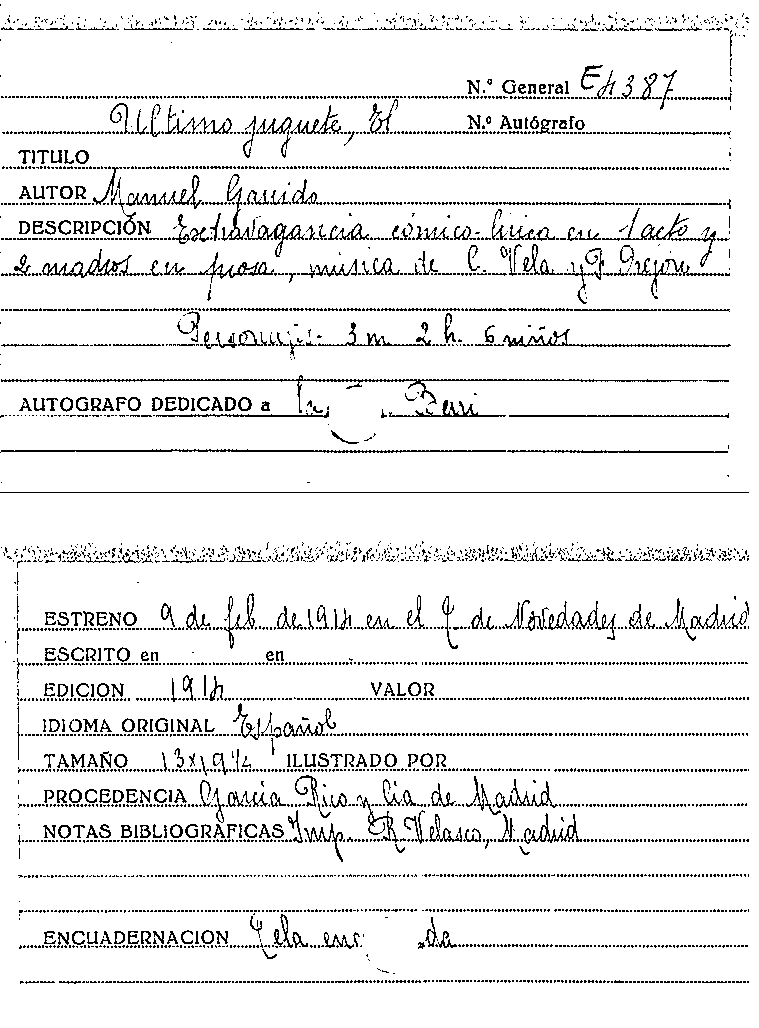 N.º General E4387
Ultimo juguete, El N.º Autógrafo
TITULO
AUTOR Manuel Garrido
DESCRIPCIÓN Extravagancia cómico-lírica en 1 acto y
2 cuadros en prosa, música de C. Vela y P.
Personajes- 3 m 2 h. 6 niños
AUTOGRAFO DEDICADO a
ESTRENO 9 de feb. de 1914 en el T. de Novedades de Madrid
ESCRITO en en
EDICION 1914 VALOR
IDIOMA ORIGINAL Español
TAMAÑO 13x19 ILUSTRADO POR
PROCEDENCIA García Rico y Cia de Madrid
NOTAS BIBLIOGRAFICAS Imp. R. Velasco, Madrid
ENCUADERNACION Tela